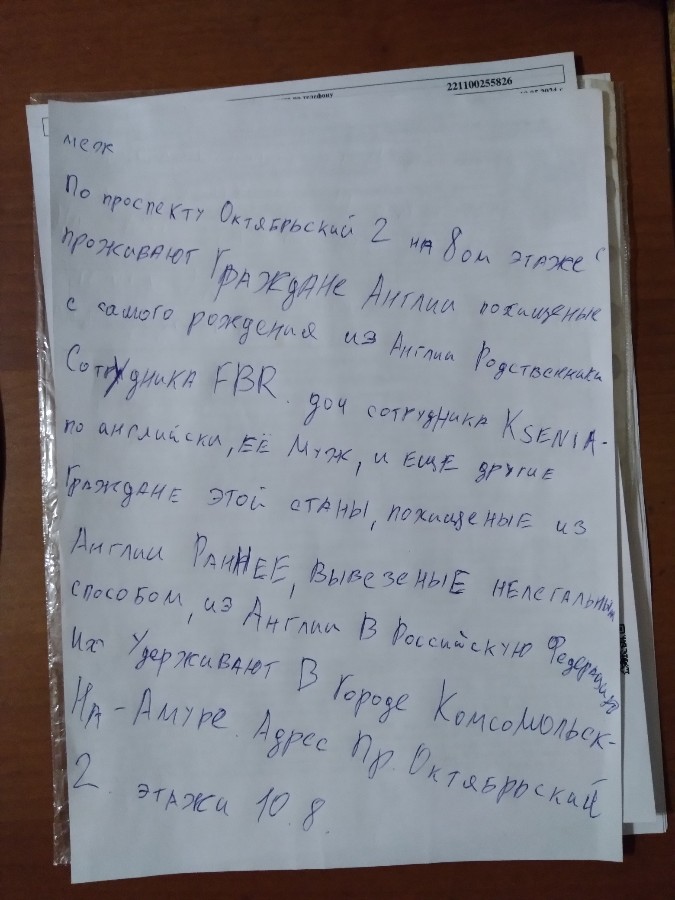 221100255826
меж
По проспекту Октябрьский 2 на 8ом этаже
проживают Граждане Англии похищеные
с самого рождения из Англии Родственники
Сотрудника FBR. доч сотрудника KSENIA-
по английски, её Муж, и еще другие
Граждане этой станы, похищеные из
Англии РанНее, вывезеные нелегальным
способом, из Англии В Российскую Федерацию
их Удерживают В городе Комсомольск-
На-Амуре. Адрес пр. Октябрьский
2. этажи 10.8.